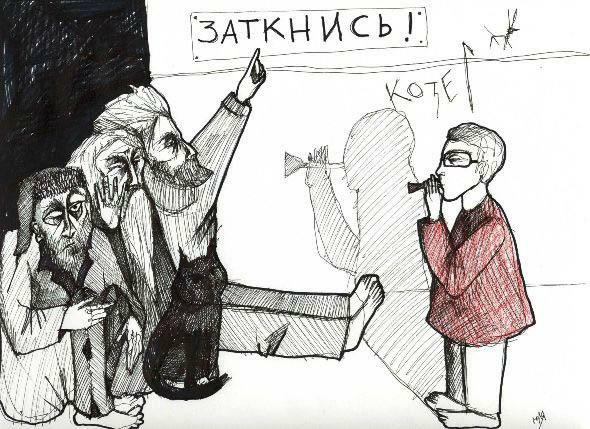 ЗАТКНИСЬ!
КОЗЕЛ